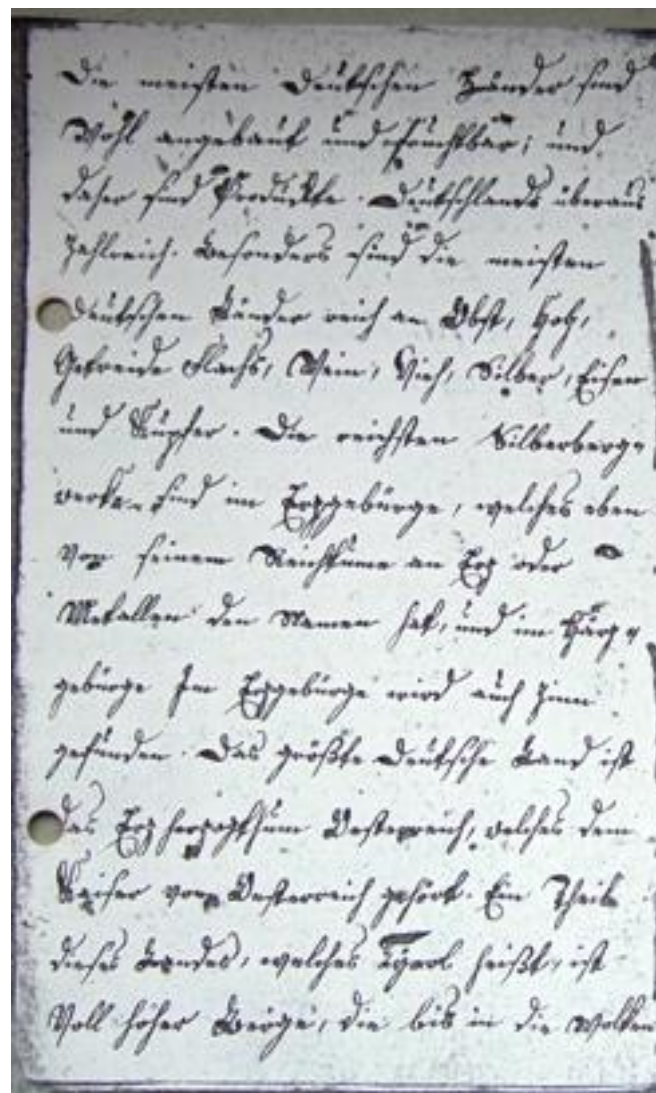 Die meisten Deutschen Länder sind
Wohl angebaut und Fruchtbar; und
daher sind Produckte Deutschlands überaus
zahlreich. Besonders sind die meisten
Deutschen Länder reich an Obst, Holz,
Getreide Flachs, Wein, Vieh, Silber, Eisen
und Kupfer. Die reichsten Silberberg=
werke sind im Erzgebürge, welches eben
von seinem Reichthume an Erz oder
Metallen den Namen hat, und im Harz=
gebürge Im Erzgebürge wird auch Zinn
gefunden. Das größte Deutsche Land ist
das Erzherzogthum Oesterreich, welches dem
Kaiser von Oesterreich gehört. Ein Theil
dieses Landes, welches Tyrol heißt, ist
Voll hoher Berge, die bis in die Wolken